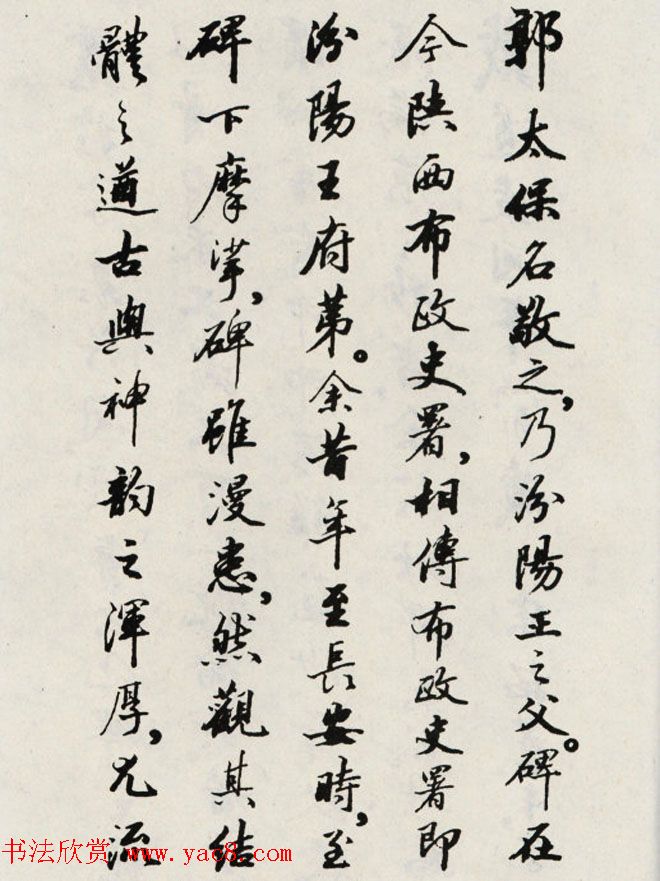 郭太保名敬之,乃汾陽王之父。碑在
今陝西布政史署,相傳布政史署即
汾陽王府第。余昔年至長安時,至
碑下摩挲,碑雖漫患,然觀其結
體之遒古與神韵之渾厚,尤流
书法欣赏 www.yac8.com